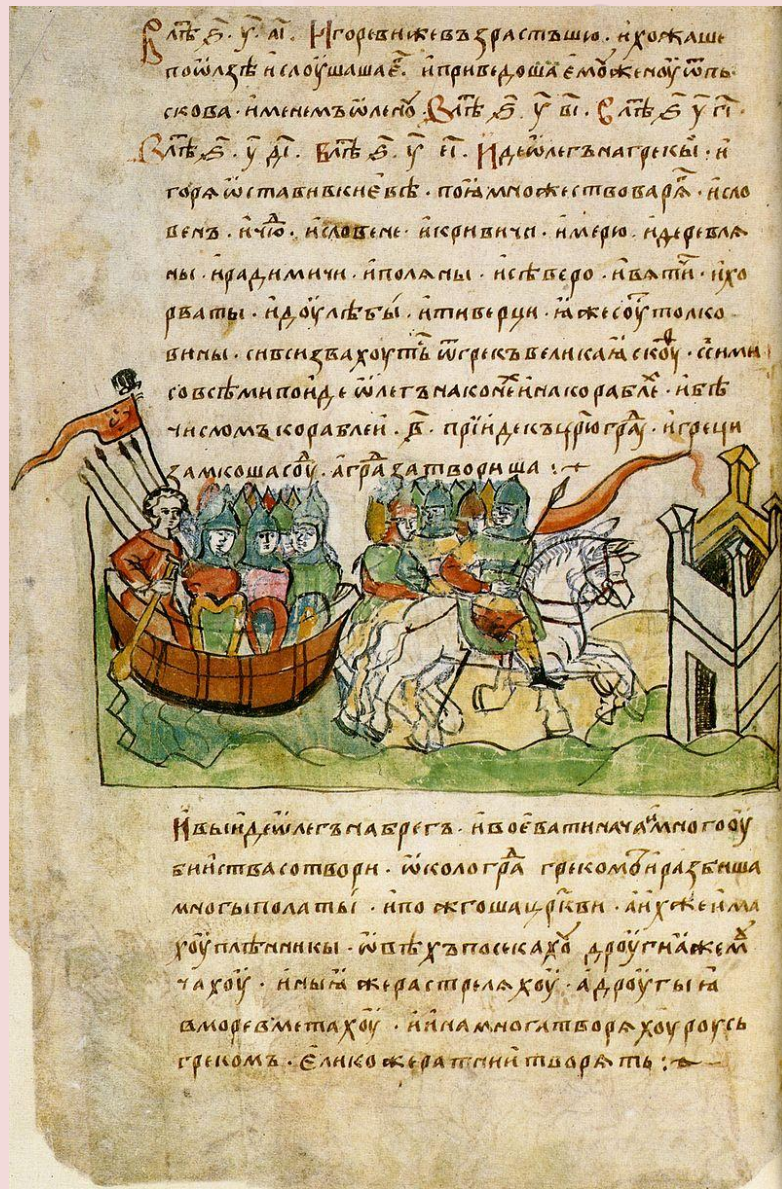 В лѣⷮ ҂ѕ҃ у҃ а҃і Игореви же възрастъшю и хожаше
по Ѡлзѣ и слоушаша еⷢ и приведоша ємоу женоу ѿ Пь
скова именемъ Ѡленоу В лѣⷮ ҂ѕ҃ у҃ в҃і В лѣⷮ ҂ѕ҃ у҃ г҃і
В лѣⷮ ҂ѕ҃ у҃ д҃і В лѣⷮ ҂ѕ҃ у҃ е҃і Иде Ѡлегъ на грекы и
горя ѡставив Киевѣ поꙗ множество варѧⷢ и сло
венъ и чюⷣ и словене и кривичи и мерю и деревлѧ
ны и радимичи и полѧны и сѣверо и вѧтиⷱ и хо
рваты и доулѣбы и тиверци ꙗже соуⷮ толко
вины си вси звахоутьⷭ ѿ грекъ великаꙗ скоуⷴ с сими
со всѣми поиде Ѡлегъ на конеⷯ и на кораблеⷯ и бѣ
числомъ кораблеи ҂в҃ прїиде къ цр҃юграⷣ и греци
замкоша соуⷣ а граⷣ затвориша
И выиде Ѡлегъ на брегъ и воєвати начаⷩ много оу
биства сотвори ѡколо граⷣ грекомъ и разбиша
многы полаты и пожгоша цр҃кви а ихже има
хоу плѣнникы ѡвѣхъ посекахоу дроугиꙗ же моуⷱ
чахоу иныꙗ же растрелѧхоу а дроугыꙗ
в море вметахоу и ина многа творѧхоу роусь
грекомъ єлико же ратнии творѧть